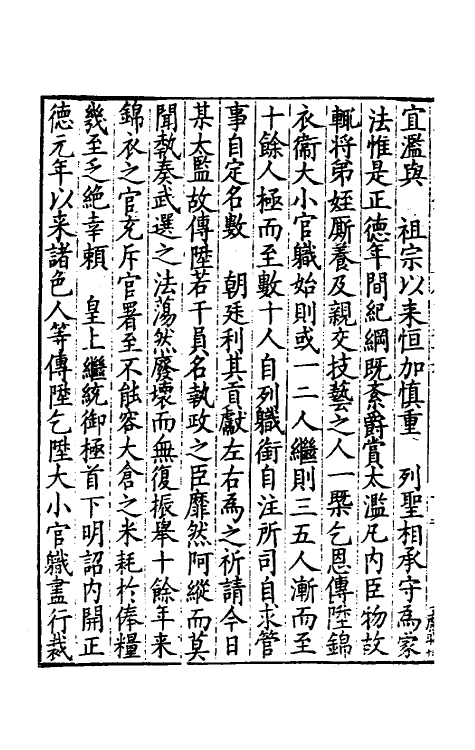 宜濫與　祖宗以来恒加慎重　列聖相承守為家
法惟是正德年間紀綱既紊爵賞太濫凡内臣物故
輒将弟姪厮養及親交技藝之人一槩乞恩傳陞錦
衣衞大小官職始則或一二人繼則三五人漸而至
十餘人極而至數十人自列職銜自注所司自求管
事自定名數　朝廷利其貢獻左右為之祈請今日
某太監故傳陞若干員名執政之臣靡然阿縱而莫
聞執奏武選之法蕩然廢壞而無復振舉十餘年来
錦衣之官充斥官署至不能容大倉之米耗於俸糧
幾至乏絶幸頼　皇上繼統御極首下明詔内開正
德元年以来諸色人等傳陞乞陞大小官職盡行裁